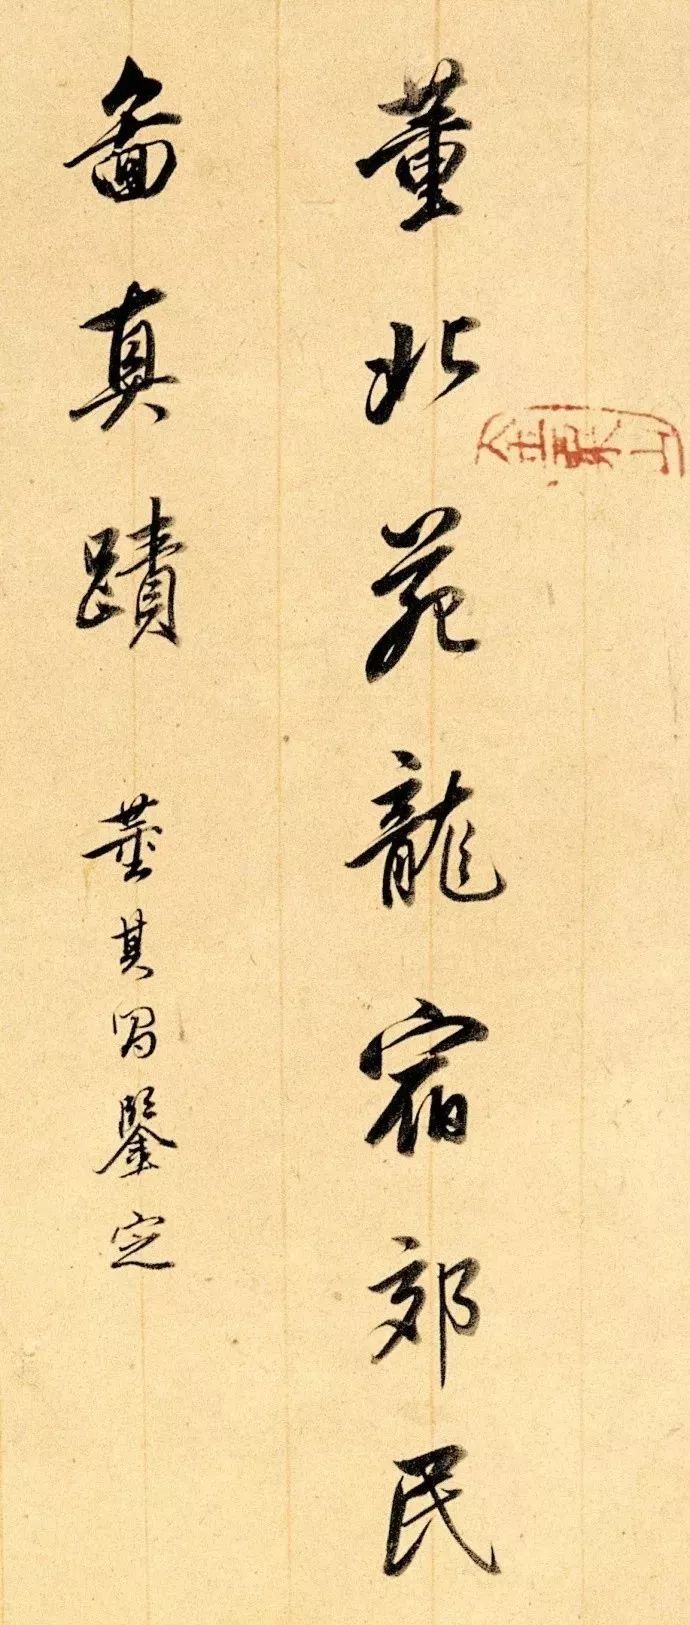 董北苑龍宿郊民
啚真蹟 董其昌鑒定